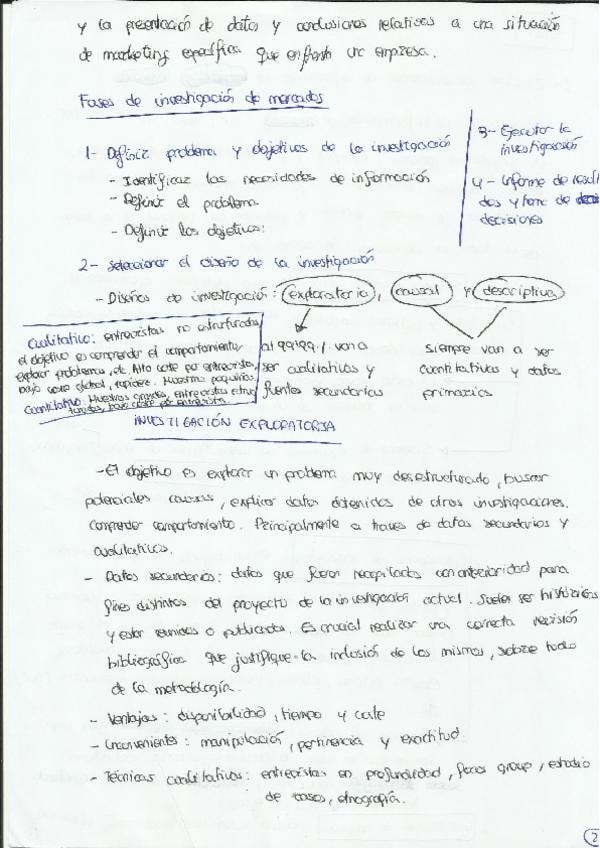 y la presentación de datos y conclusiones relativas a una situación
de marketing específica que enfrenta una empresa.
Fases de investigación de mercados
1- Definir problema y objetivos de la investigación
- Identificar las necesidades de información
- Definir el problema
- Definir los objetivos.
3- Ejecutar la
investigación
4- Informe de resul
dos y toma de
decisiones
2- Seleccionar el diseño de la investigación
- Diseños de investigación: exploratoria, causal y descriptiva
Cualitativo: entrevistas no estructuradas,
el objetivo es comprender el comportamiento,
explorar problemas, etc. Alto coste por entrevista,
bajo coste global, rapidez. Muestras pequeñas.
Cuantitativo: Muestras grandes, entrevistas estruc
turadas, bajo coste por entrevista.
al 99'99% van a
ser cualitativos y
fuentes secundarias
siempre van a ser
cuantitativas y datos
primarios
INVESTIGACIÓN EXPLORATORIA
- El objetivo es explorar un problema muy desestructurado, buscar
potenciales causas, explicar datos obtenidos de otras investigaciones.
Comprender comportamiento. Principalmente a traves de datos secundarios y
cualitativos.
- Datos secundarios: datos que fueron recopilados con anterioridad para
fines distintos del proyecto de la investigación actual. Suelen ser históricos
y estar reunidos o publicados. Es crucial realizar una correcta revisión
bibliográfica que justifique la inclusión de los mismos, sobre todo
de la metodología.
- Ventajas: disponibilidad, tiempo y coste
- Inconvenientes: manipulación, pertinencia y exactitud.
- Técnicas cualitativas: entrevistas en profundidad, focus group, estudio
de casos, etnografía.
2